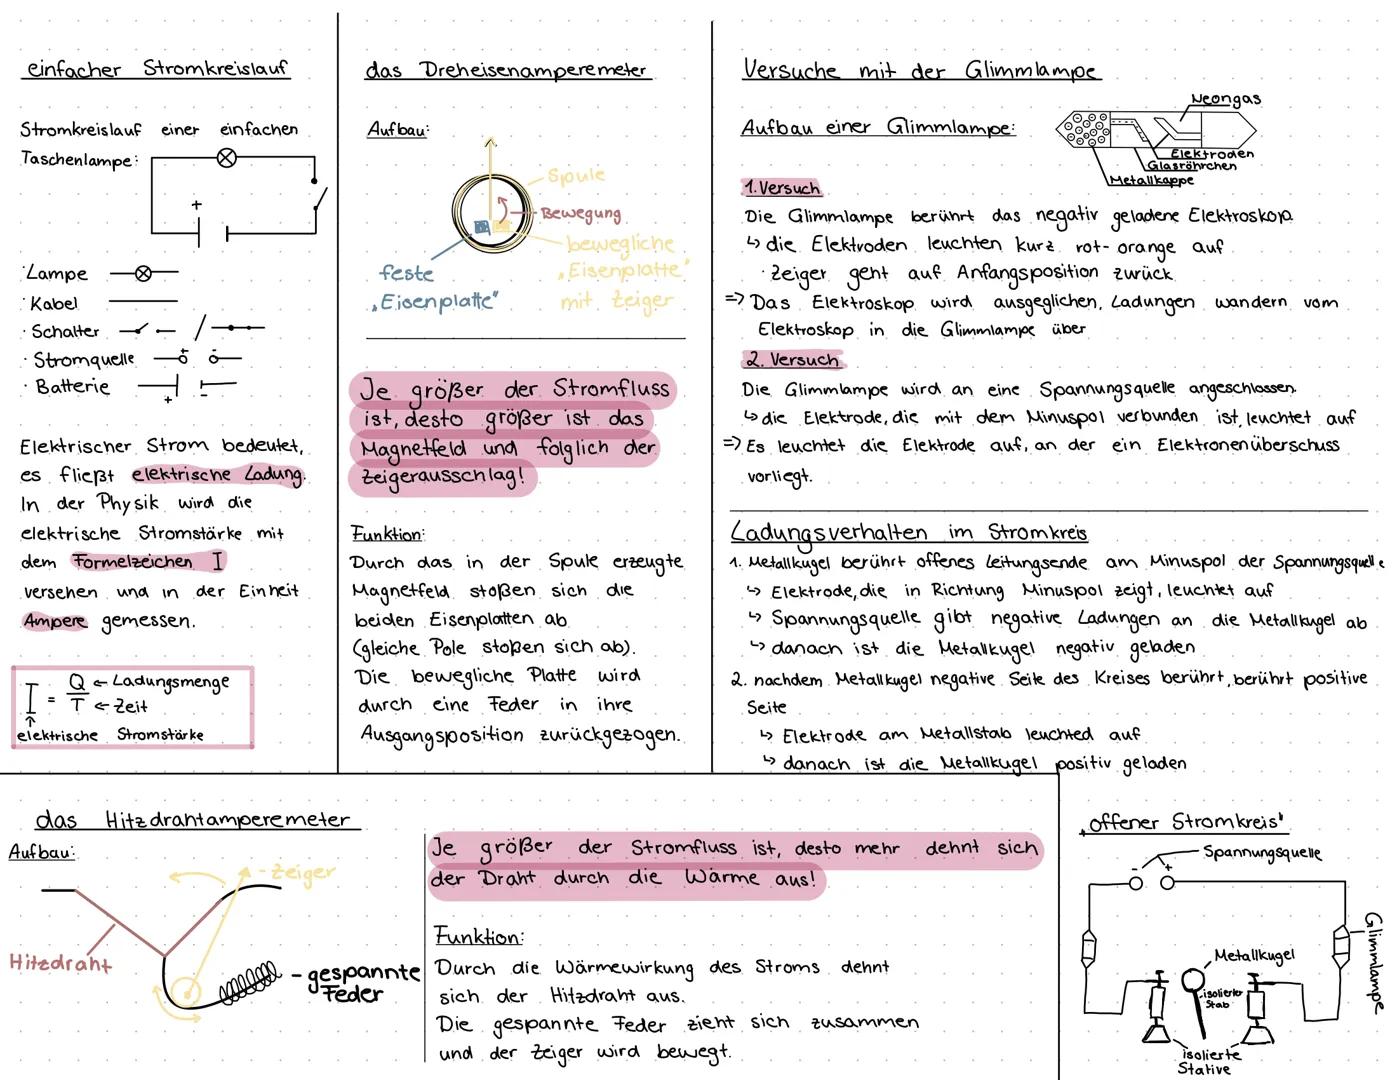 einfacher Stromkreislauf
Stromkreislauf einer einfachen
Taschenlampe:
+
· Lampe
· Kabel
· Schalter /
· Stromquelle + -
· Batterie + -
Elektrischer Strom bedeutet,
es fließt elektrische Ladung.
In der Physik wird die
elektrische Stromstärke mit
dem Formelzeichen I
versehen und in der Einheit
Ampere gemessen.
I = Q ← Ladungsmenge
T ← Zeit
↑
elektrische Stromstärke
das Dreheisenamperemeter
Aufbau:
Spule
Bewegung
bewegliche
„Eisenplatte“
mit Zeiger
feste
„Eisenplatte“
Je größer der Stromfluss
ist, desto größer ist das
Magnetfeld und folglich der
Zeigerausschlag!
Funktion:
Durch das in der Spule erzeugte
Magnetfeld stoßen sich die
beiden Eisenplatten ab
(gleiche Pole stoßen sich ab).
Die bewegliche Platte wird
durch eine Feder in ihre
Ausgangsposition zurückgezogen.
Versuche mit der Glimmlampe
Aufbau einer Glimmlampe:
Neongas
Elektroden
Glasröhrchen
Metallkappe
1. Versuch
Die Glimmlampe berührt das negativ geladene Elektroskop.
↳ die Elektroden leuchten kurz rot-orange auf
· Zeiger geht auf Anfangsposition zurück
=> Das Elektroskop wird ausgeglichen, Ladungen wandern vom
Elektroskop in die Glimmlampe über
2. Versuch
Die Glimmlampe wird an eine Spannungsquelle angeschlossen.
↳ die Elektrode, die mit dem Minuspol verbunden ist, leuchtet auf
=> Es leuchtet die Elektrode auf, an der ein Elektronenüberschuss
vorliegt.
Ladungsverhalten im Stromkreis
1. Metallkugel berührt offenes Leitungsende am Minuspol der Spannungsquelle
↳ Elektrode, die in Richtung Minuspol zeigt, leuchtet auf
↳ Spannungsquelle gibt negative Ladungen an die Metallkugel ab
↳ danach ist die Metallkugel negativ geladen
2. nachdem Metallkugel negative Seite des Kreises berührt, berührt positive
Seite
↳ Elektrode am Metallstab leuchted auf
↳ danach ist die Metallkugel positiv geladen
das Hitzdrahtamperemeter
Aufbau:
- Zeiger
Hitzdraht
- gespannte
Feder
Je größer der Stromfluss ist, desto mehr dehnt sich
der Draht durch die Wärme aus!
Funktion:
Durch die Wärmewirkung des Stroms dehnt
sich der Hitzdraht aus.
Die gespannte Feder zieht sich zusammen
und der Zeiger wird bewegt.
„offener Stromkreis“
Spannungsquelle
- +
Glimmlampe
Metallkugel
isolierter
Stab
isolierte
Stative